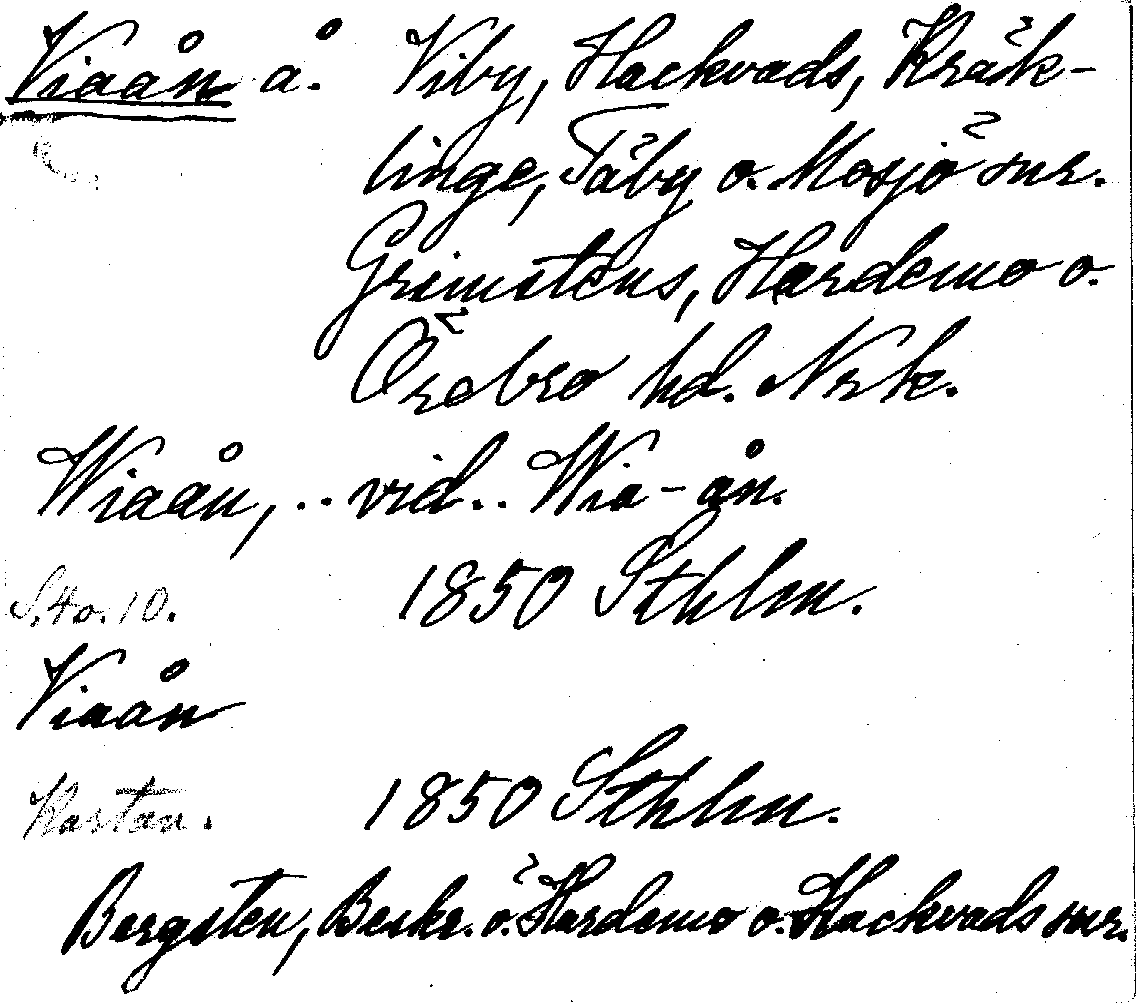 Viaån å. Viby, Hackvads, Kräk-
linge, Täby o. Mosjö snr.
Grimstens, Hardemo o.
Örebro hd. Nrk.
Wiaån, .. vid .. Wia-ån.
S. 40. 10. 1850 Sthlm.
Viaån
Kartan. 1850 Sthlm.
Bergsten, Beskr. ö. Hardemo o. Hackvads snr.